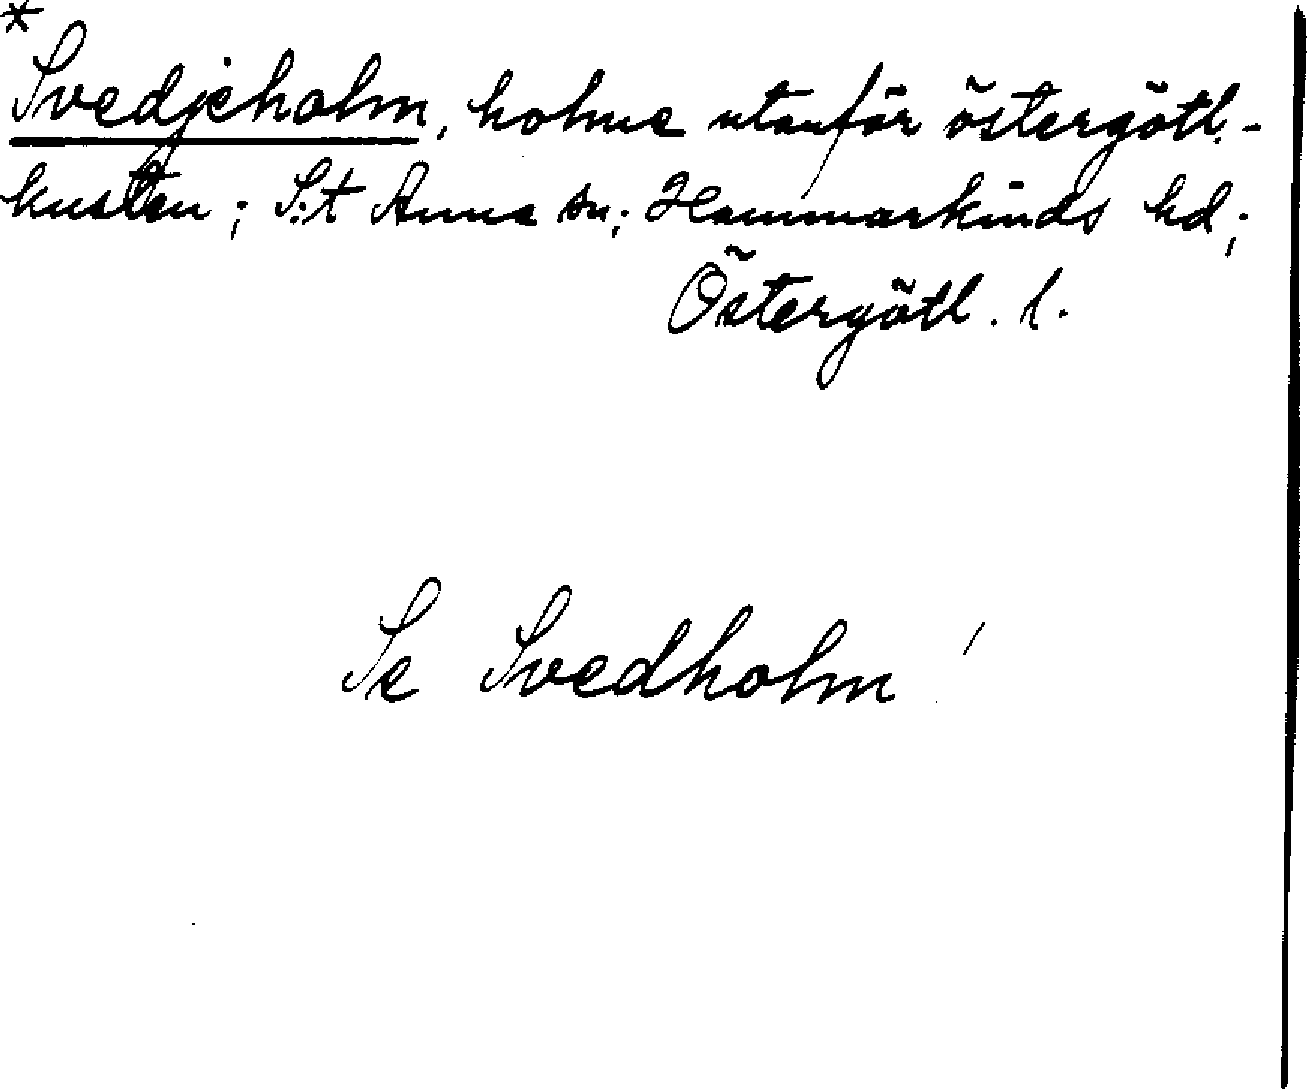 *
Svedjeholm, holme utanför östergötl.-
kusten; S:t Anna sn; Hammarkinds hd;
Östergötl. l.
Se Svedholm!